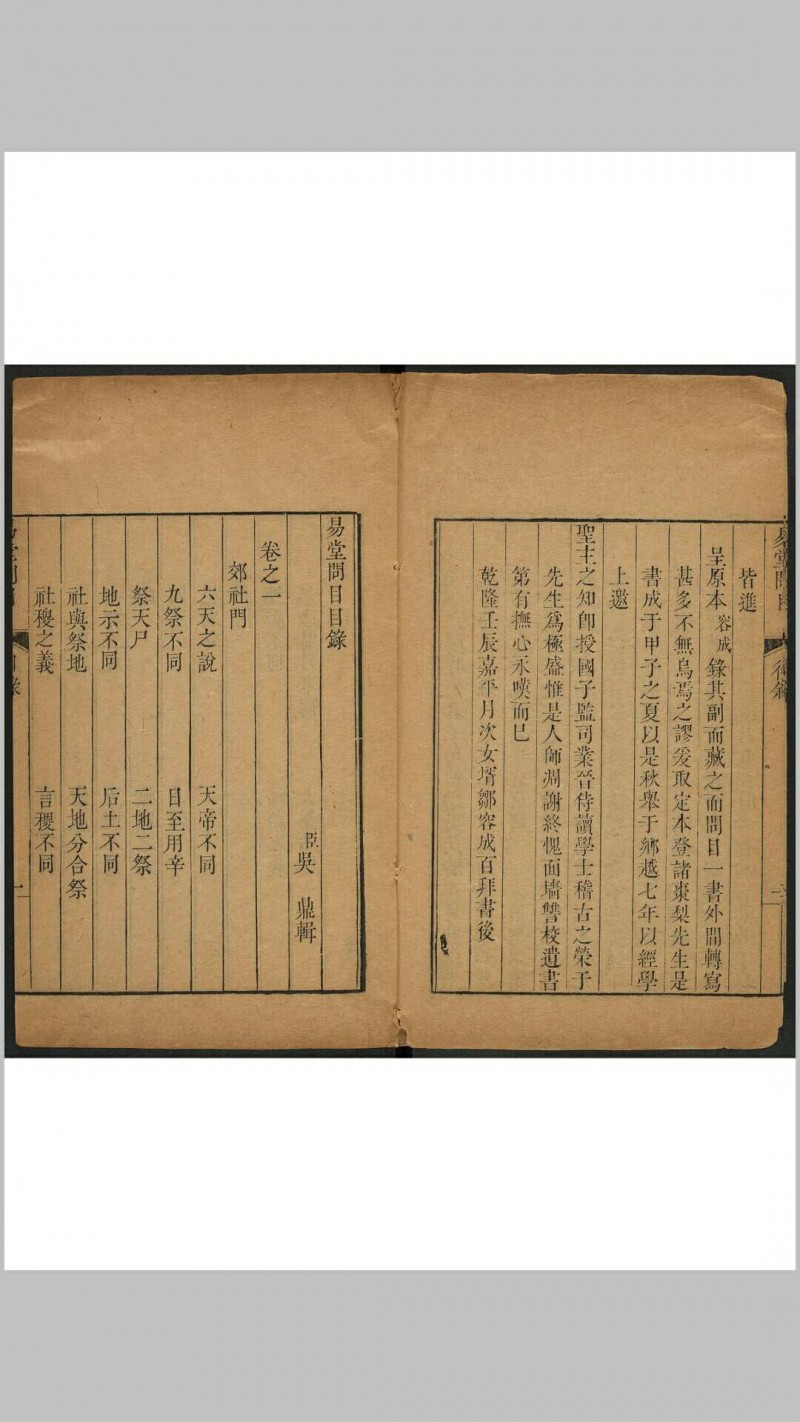 皆進
呈原本容成錄其副而藏之而問目一書外間轉寫
甚多不無烏焉之謬爰取定本登諸棗梨先生是
書成于甲子之夏以是秋舉于鄉越七年以經學
上邀
聖主之知卽授國子監司業晉侍讀學士稽古之榮于
先生爲極盛惟是人師凋謝終愧面墻讐校遺書
第有撫心永嘆而已
乾隆壬辰嘉平月次女壻鄒容成百拜書後
易堂問目目錄
臣吳 鼎輯
卷之一
郊社門
六天之說 天帝不同
九祭不同 日至用辛
祭天尸 二地二祭
地示不同 后土不同
社與祭地 天地分合祭
社稷之義 言稷不同